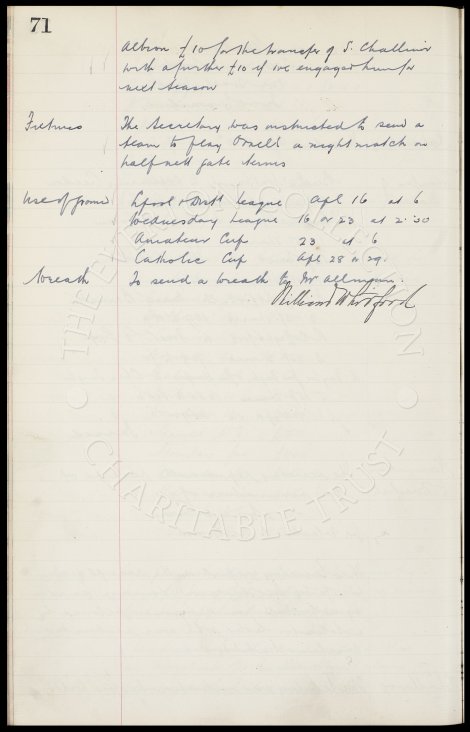 71
Albion £10 for the transfer of S. Challinor
with a further £10 if we engaged him for
next season
Fixtures The Secretary was instructed to send a
team to play Ormells a night match on
half nett gate terms
Use of ground L'pool & Dist League Apl 16 at 6
Wednesday League 16 or 23 at 2.30
Amateur Cup 23 at 6
Catholic Cup Apl 28 or 29.
Wreath To send a wreath to Mr
William Whitford
THE EVERTON COLLECTION
CHARITABLE TRUST